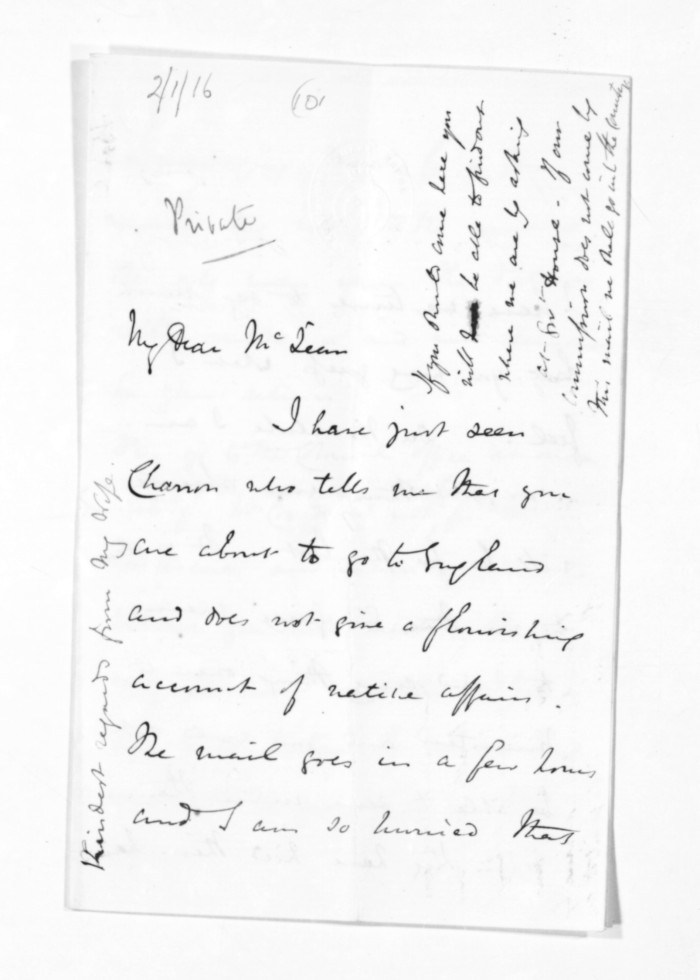 2/1/16
(101
Private
My Dear McLean
I have just seen
Channon who tells me that you
are about to go to England
and does not give a flourishing
account of native affairs.
The mail goes in a few hours
and I am so hurried that
If you should come here you
will be able to find out
where we are by asking
at Govt House - If our
Commission does not come by
this mail we shall go into the Country
Kindest regards from my Wife.